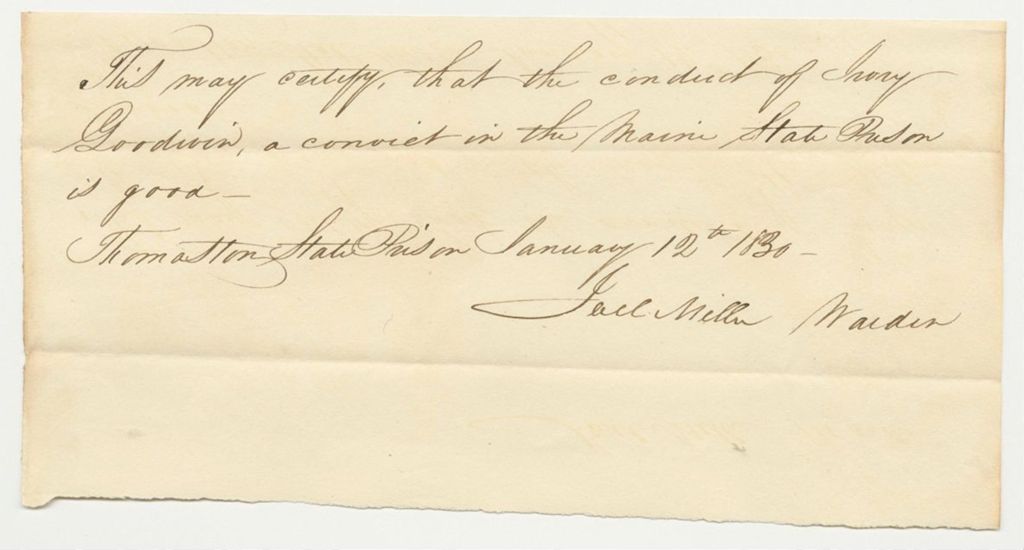 This may certify, that the conduct of Ivory
Goodwin, a convict in the Maine State Prison
is good —
Thomaston State Prison January 12th 1830 —
Joel Miller Warden